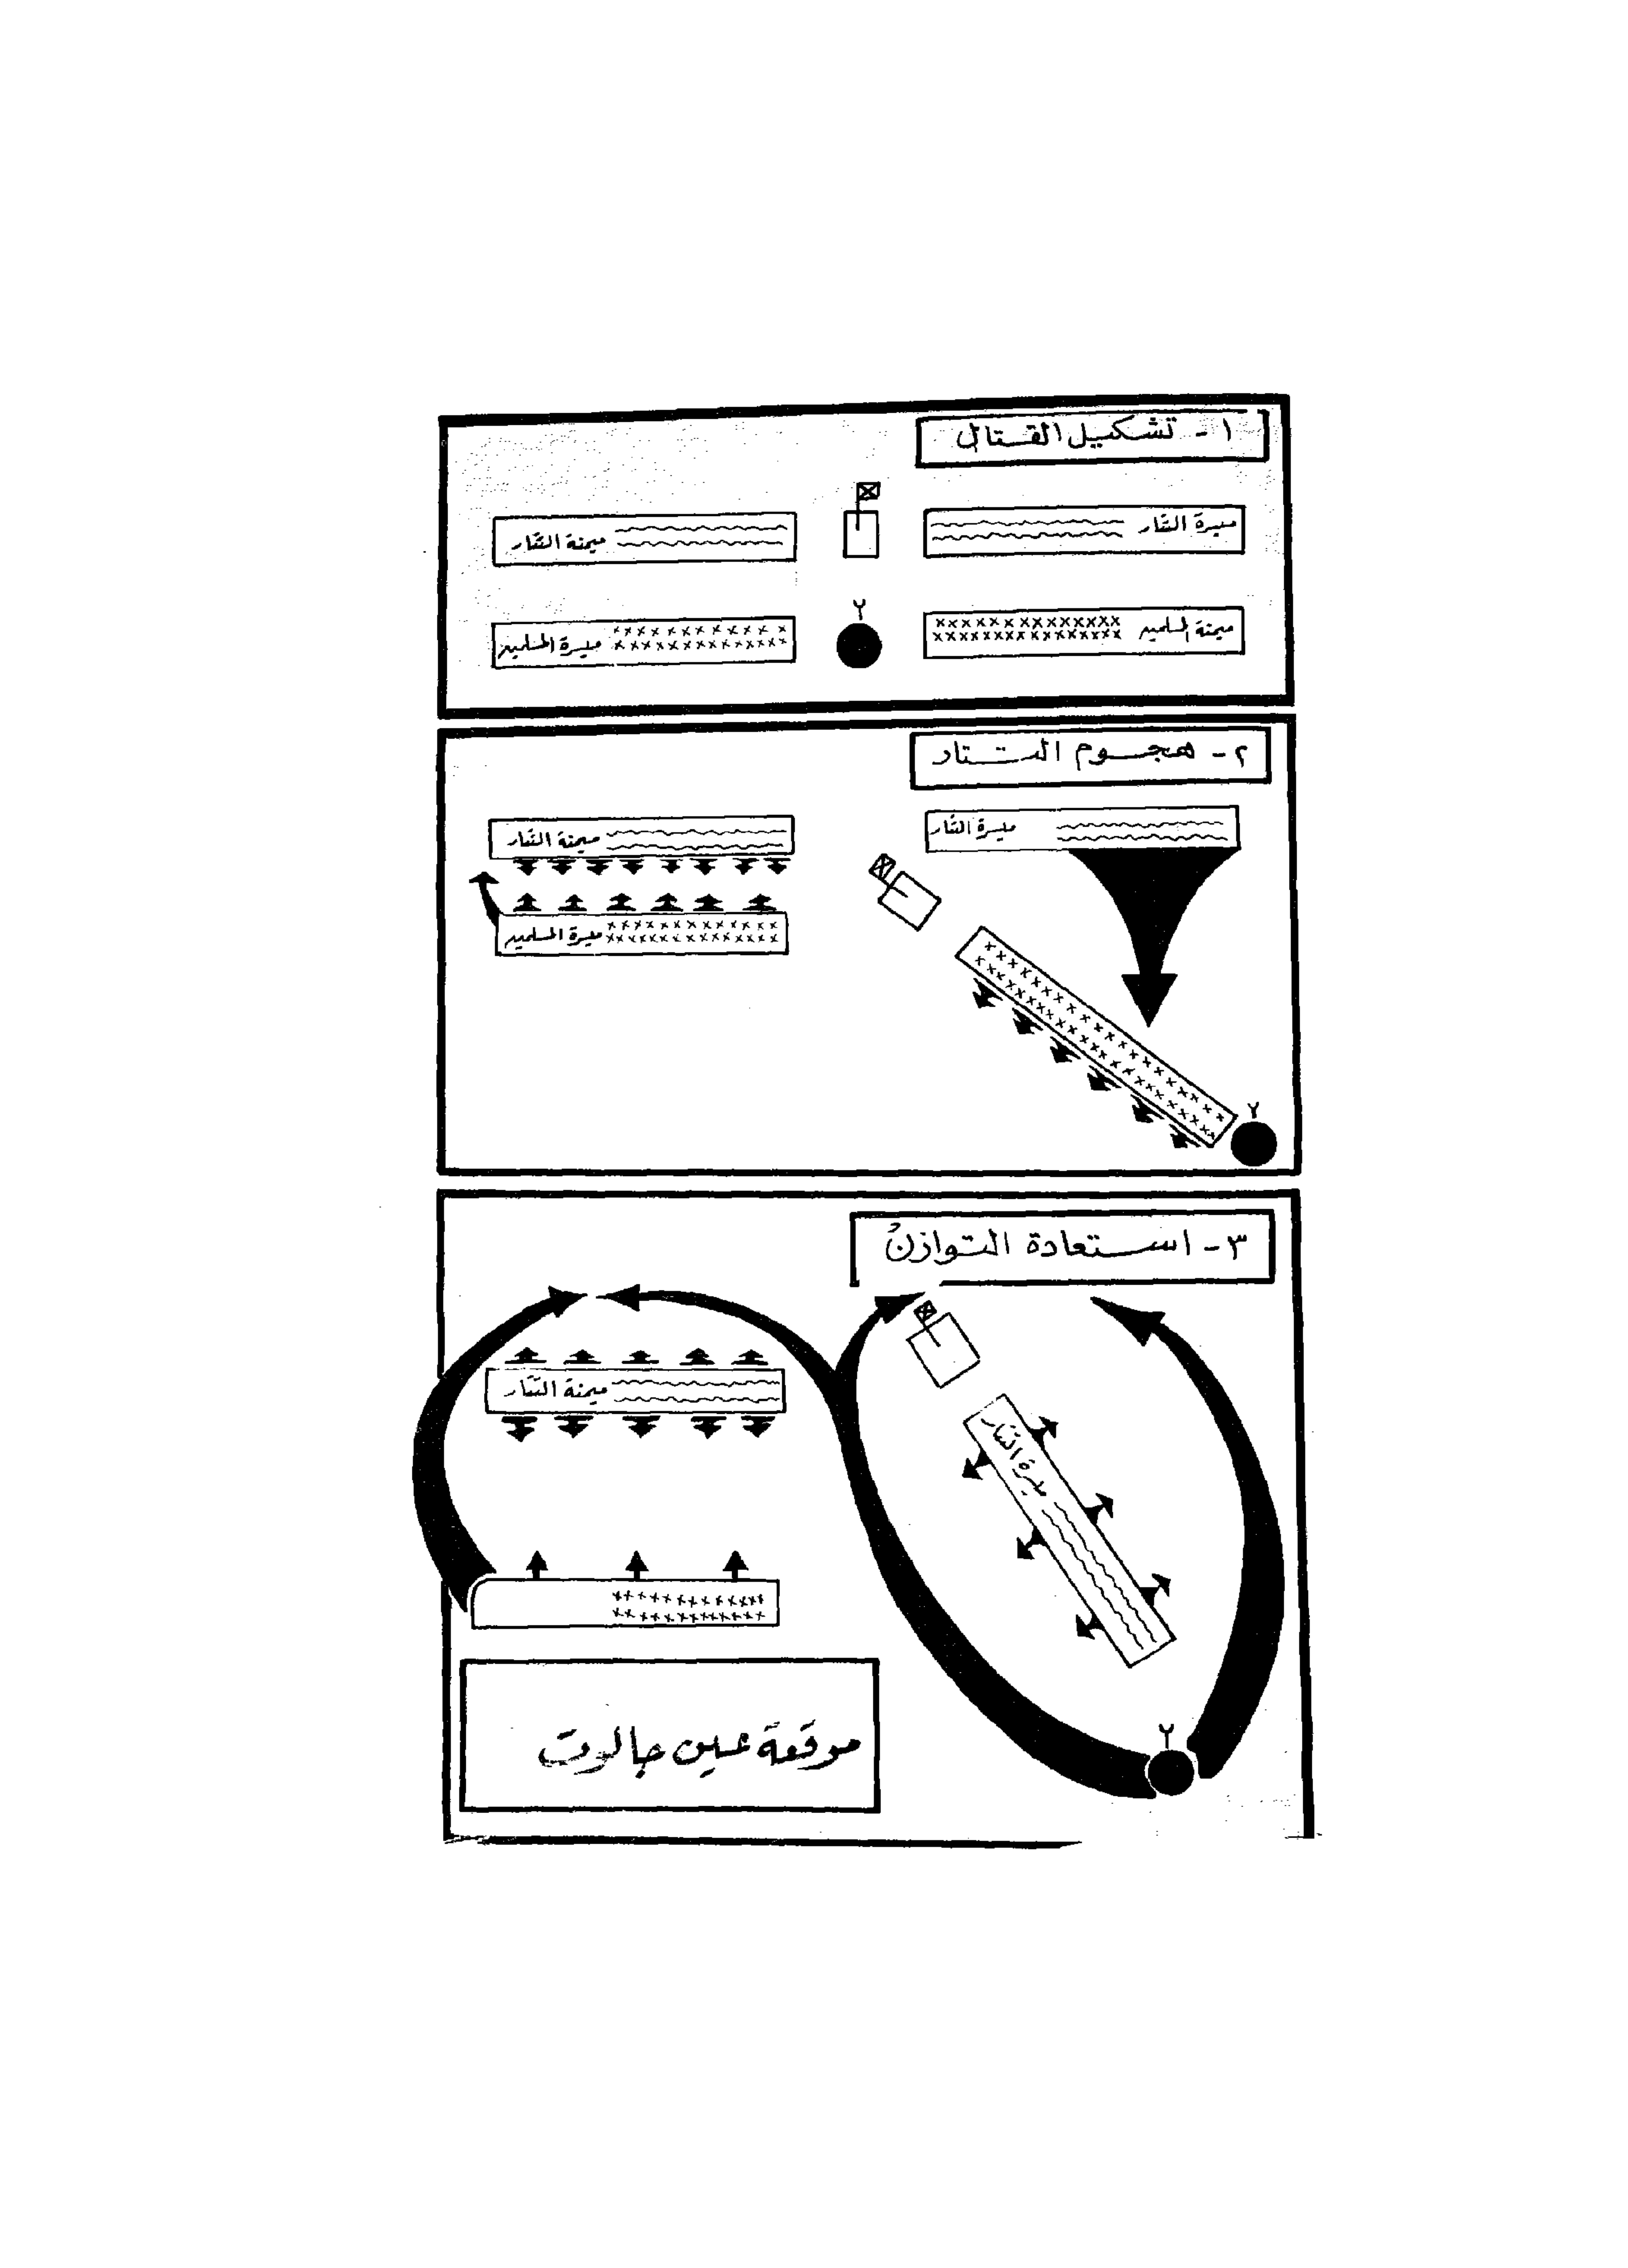 ١- تشكيل القتال
ميسرة التتار
ميمنة التتار
ميمنة المسلمين
٢
ميسرة المسلمين
٢- هجوم التتار
ميسرة التتار
ميمنة التتار
ميسرة المسلمين
٢
٣- استعادة التوازن
ميمنة التتار
ميسرة التتار
٢
موقعة عين جالوت